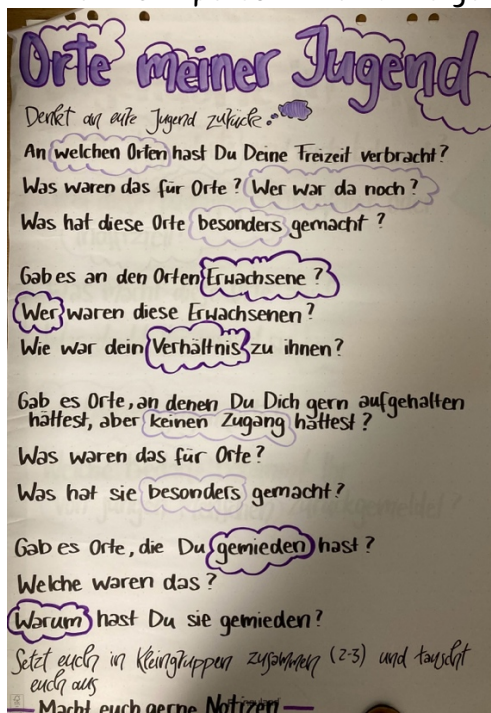 Orte meiner Jugend
Denkt an eure Jugend zurück:
An welchen Orten hast Du Deine Freizeit verbracht?
Was waren das für Orte? Wer war da noch?
Was hat diese Orte besonders gemacht?
Gab es an den Orten Erwachsene?
Wer waren diese Erwachsenen?
Wie war dein Verhältnis zu ihnen?
Gab es Orte, an denen Du Dich gern aufgehalten
hättest, aber keinen Zugang hattest?
Was waren das für Orte?
Was hat sie besonders gemacht?
Gab es Orte, die Du gemieden hast?
Welche waren das?
Warum hast Du sie gemieden?
Setzt euch in Kleingruppen zusammen (2-3) und tauscht
euch aus
Macht euch gerne Notizen